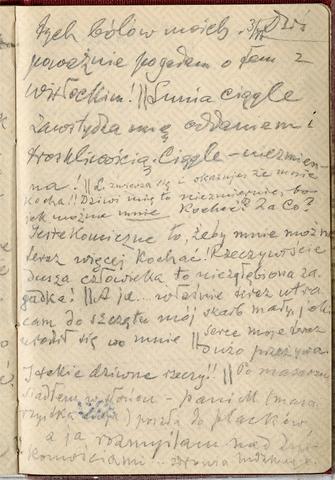 tych bólów moich. 3/VI Dziś
poważnie pogadam o tem z
Wysłockim! || Lunia ciągle
zawstydza mię oddaniem i
troskliwością. Ciągle – niezmien-
na! || L. zwierza się i okazuje, że mnie
kocha!! Dziwi mię to niezmiernie, bo
jak można mnie kochać? Za Co?
Jest komiczne to, żeby mnie można
teraz więcej kochać! Rzeczywiście
dusza człowieka to niezgłębiona za-
gadka! || A ja... właśnie teraz utra-
cam do szczętu mój skarb mały, jaki
się we mnie || serce moje teraz
dużo przeżywa
Jakie dziwne rzeczy!! || Po
siadłem w słońcu – panick (masa-
rzystka) poszła do placków
a ja rozmyślam nad